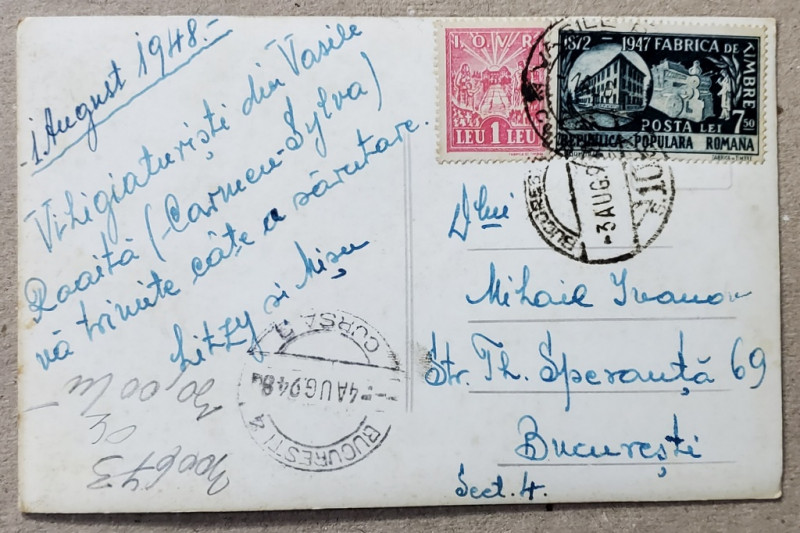 1. August 1948.-
Viligiaturiști din Vasile
Roaită (Carmen-Sylva)
vă trimite câte o sărutare.
Litzy si Mișu
30,00 lu
300673
I.O.V.R.
LEU 1 LEU
1872 - 1947 FABRICA DE
TIMBRE
POSTA LEI 7 50
REPUBLICA POPULARA ROMANA
VASILE
BUCURESTI
-3 AUG.9
BUCURESTI 4
-4 AUG 948
CURSA 3
Dlui
Mihail Ivanov
Str. Th. Speranță 69
București
Sect. 4.